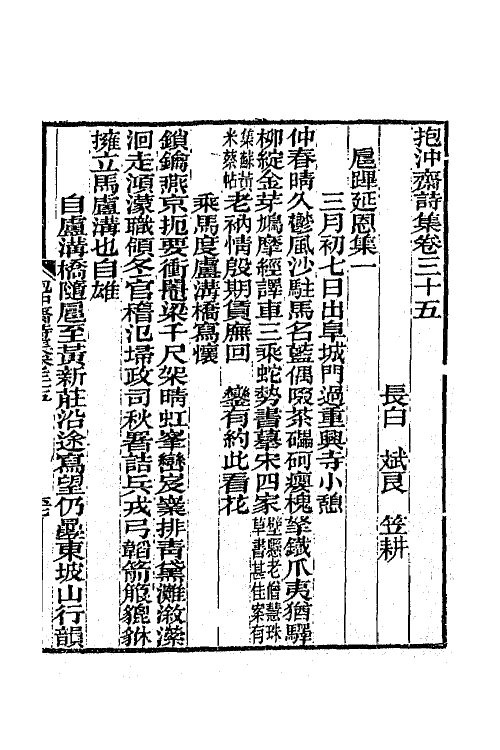 抱沖齋詩集卷三十五
長白　斌良　笠耕
扈蹕延恩集一
三月初七日出阜城門過重興寺小憩
仲春晴久鬱風沙駐馬名藍偶啜茶礧砢癭槐拏鐵爪夷猶驛
柳綻金芽鳩摩經譯車三乘蛇勢書摹宋四家壁懸老僧慧珠草書甚佳案有
集蘇黃米蔡帖老衲情殷期賁廡回　鑾有約此看花
乘馬度盧溝橋寫懷
鎖鑰燕京扼要衝鼉梁千尺架晴虹峯巒岌嶪排青黛灘潋潆
洄走澒濛職領冬官稽氾埽政司秋署詰兵戎弓韜箭箙貔貅
擁立馬盧溝也自雄
自盧溝橋隨扈至黃新莊沿途寫望仍疊東坡山行韻